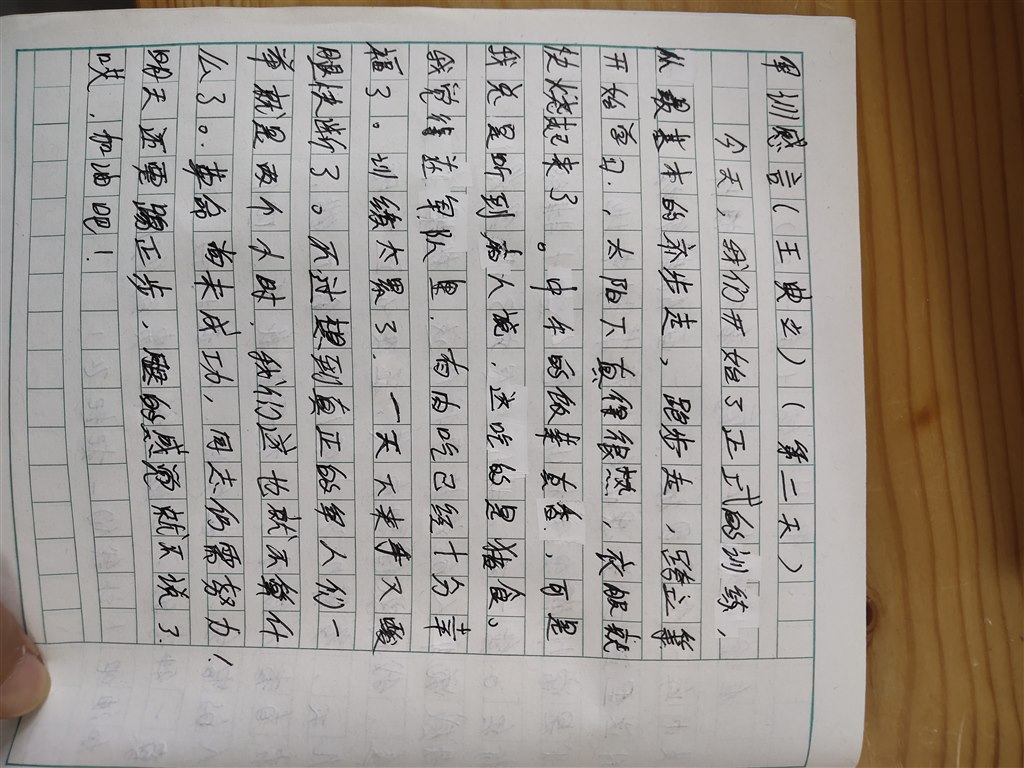 军训感言(王典之)(第二天)
今天,我们开始了正式的训练,
从最基本的齐步走,跑步走,跨立等
开始学习,太阳下真得很燃,衣服就
快烧起来了。中午的饭菜真香,可是
我总是听到有人说,这吃的是猪食。
我觉得在军队里,有肉吃已经十分幸
福了。训练太累了,一天下来手又酸
腿快断了。不过想到真正的军人们一
蹲就是两个小时,我们这也就不算什
么了。革命尚未成功,同志仍需努力!
明天还要踢正步,腿的感觉就不说了.
哎,加油吧!